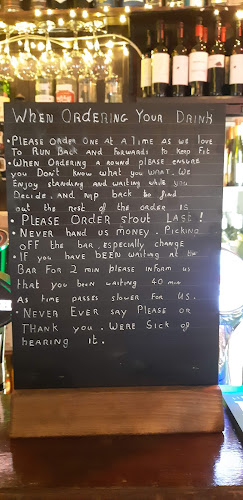 WHEN ORDERING YOUR DRINK
• PLEASE ORDER ONE AT A TIME AS WE LOVE
TO RUN BACK AND FORWARDS TO KEEP FIT
• WHEN ORDERING A ROUND PLEASE ENSURE
YOU DON'T KNOW WHAT YOU WANT. WE
ENJOY STANDING AND WAITING WHILE YOU
DECIDE. AND POP BACK TO FIND
OUT THE REST OF THE ORDER IS
• PLEASE ORDER STOUT LAST!
• NEVER HAND US MONEY. PICKING
OFF THE BAR, ESPECIALLY CHANGE
• IF YOU HAVE BEEN WAITING AT THE
BAR FOR 2 MIN PLEASE INFORM US
THAT YOU BEEN WAITING 40 MIN
AS TIME PASSES SLOWER FOR US.
• NEVER EVER SAY PLEASE OR
THANK YOU. WERE SICK OF
HEARING IT.